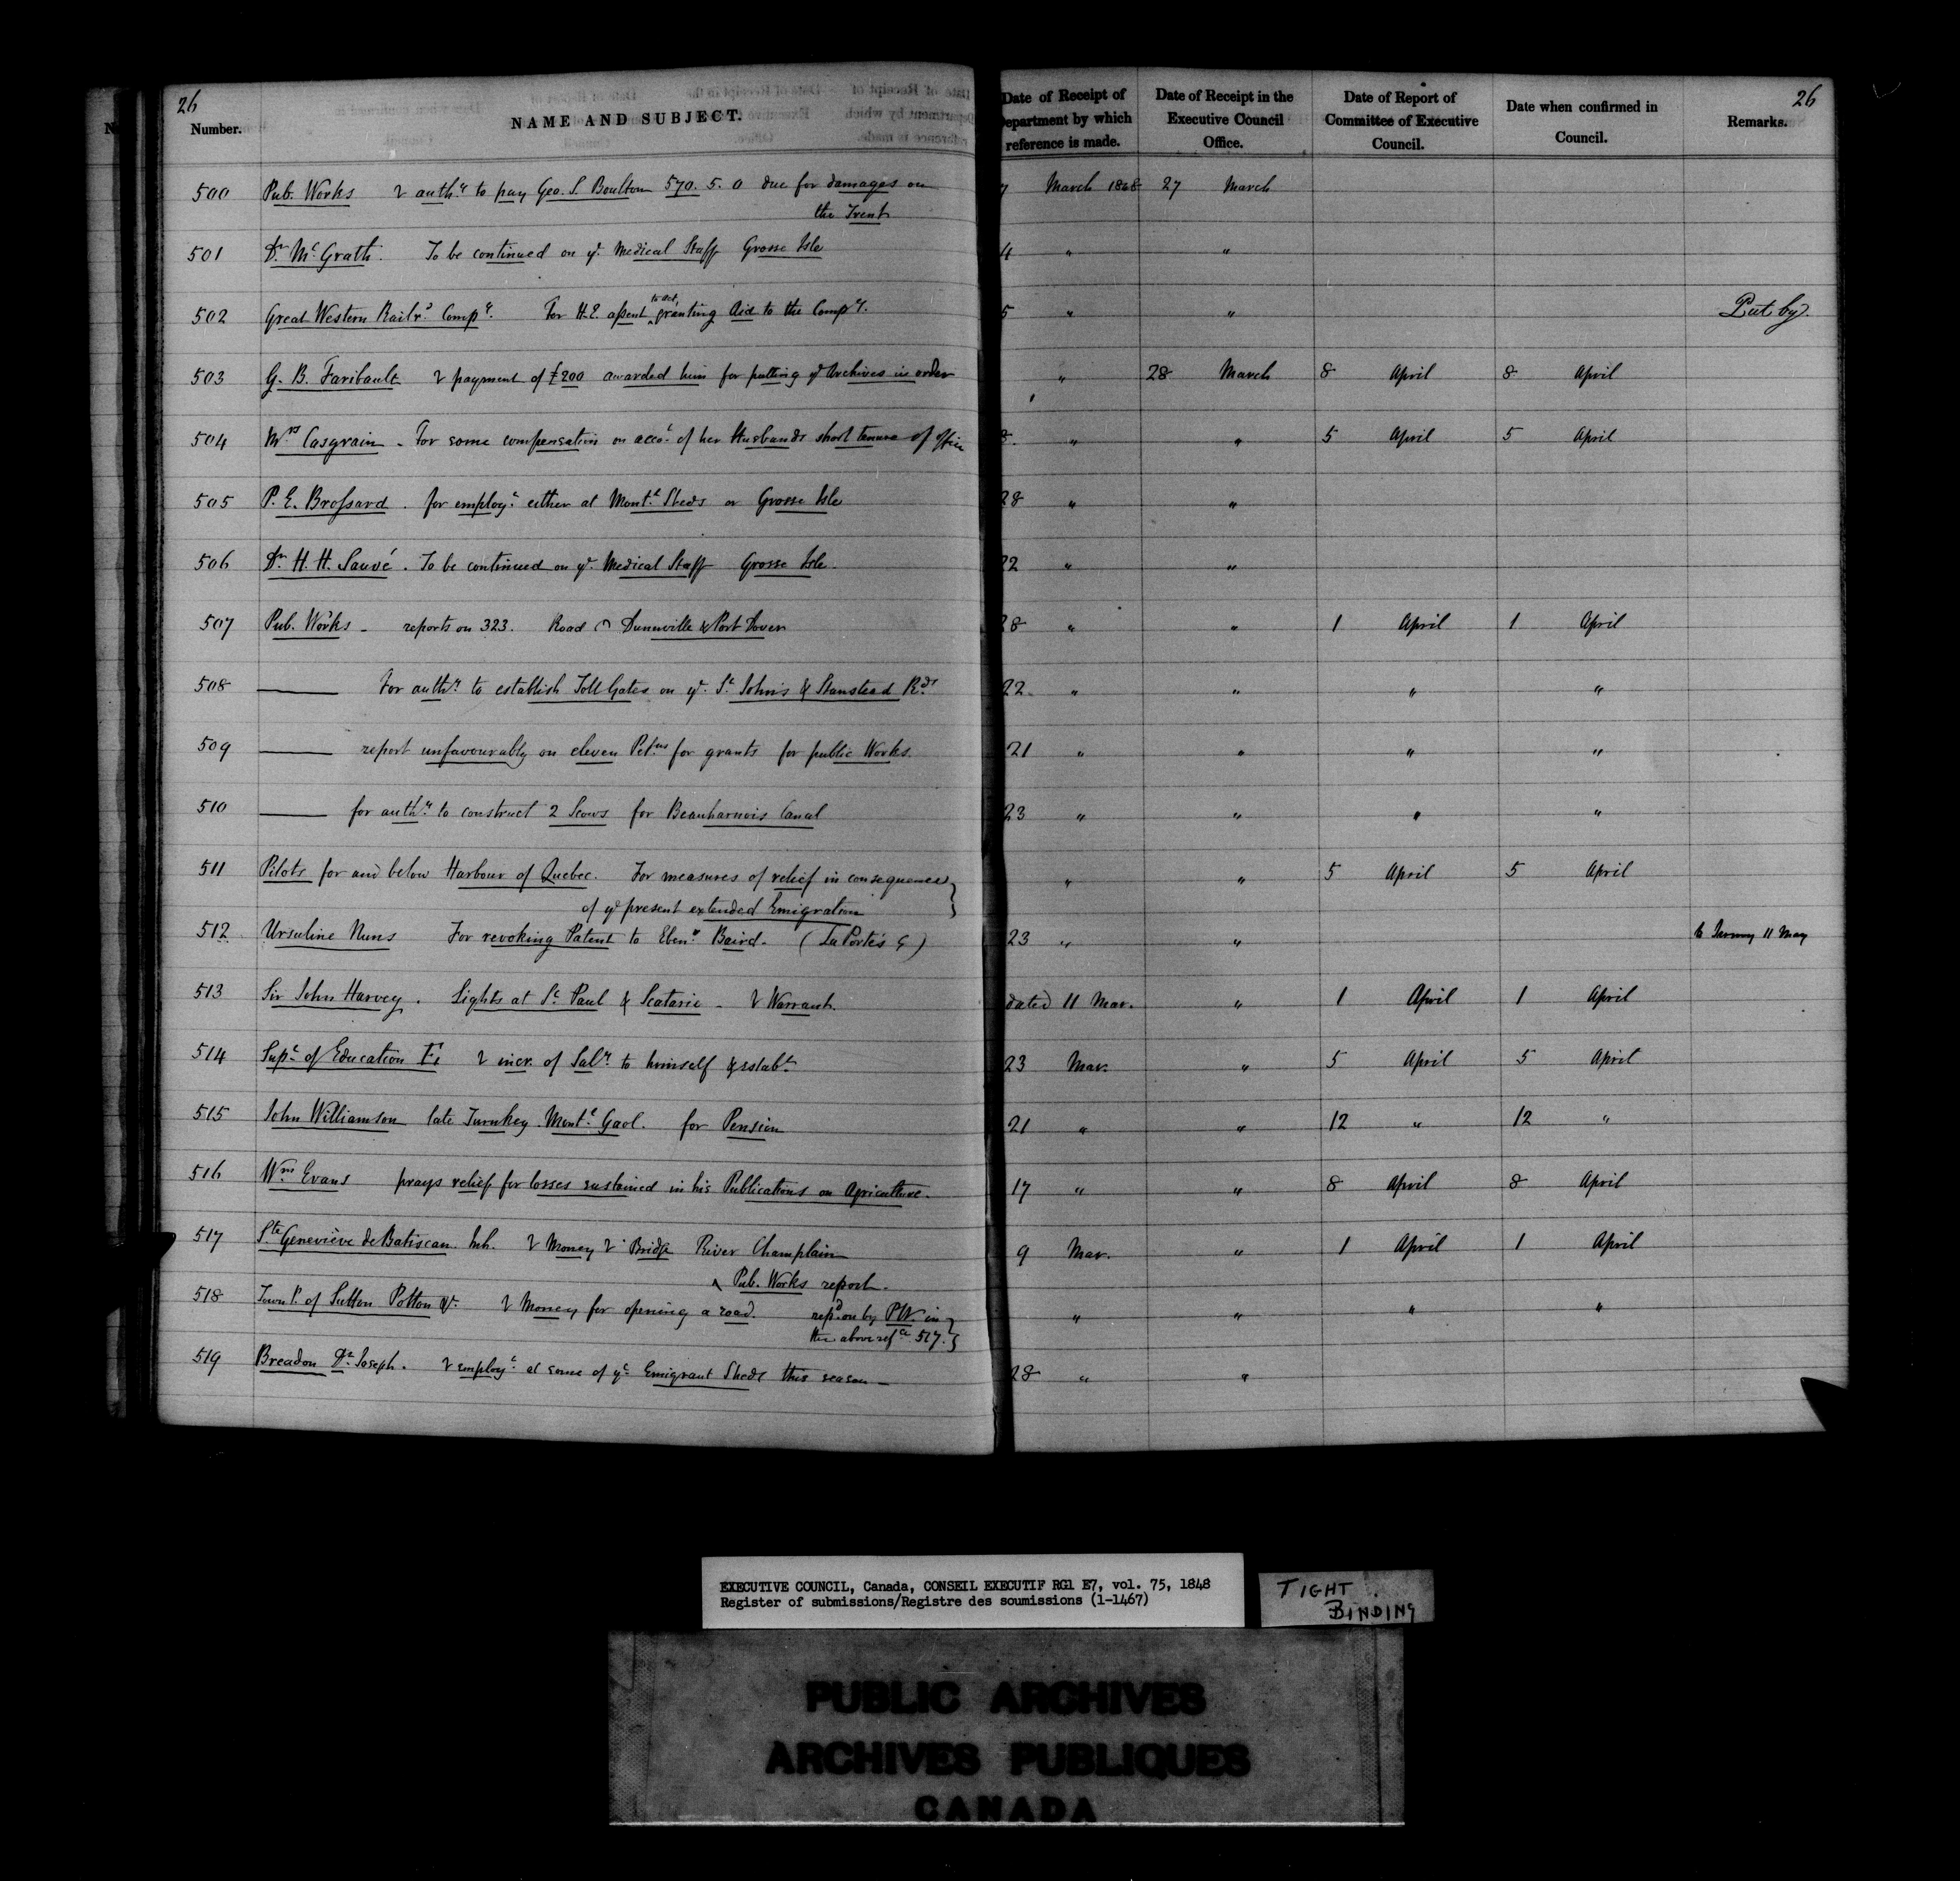 26
Number. NAME AND SUBJECT. Date of Receipt of Department by which reference is made. Date of Receipt in the Executive Council Office. Date of Report of Committee of Executive Council. Date when confirmed in Council. Remarks. 26
500 Pub. Works auth.y to pay Geo. S. Boulton 570. 5. 0 due for damages on 7 March 1848 27 March
the Trent
501 Dr. McGrath. To be continued on ye. Medical Staff Grosse Isle 4 " "
502 Great Western Railrd. Compy. For H.E. assent to act, granting Aid to the Compy. 5 " " Put by.
503 G. B. Faribault payment of £200 awarded him for putting ye Archives in order " 28 March 8 April 8 April
504 Mrs Casgrain - For some compensation on acct. of her Husbands short tenure of office 8. " " 5 April 5 April
505 P. E. Brossard. for employt. either at Montl. Sheds or Grosse Isle 28 " "
506 Dr. H. H. Sauvé. To be continued on ye. Medical Staff Grosse Isle. 22 " "
507 Pub. Works - reports on 323. Road Dunnville & Port Dover 28 " " 1 April 1 April
508 —— For authy. to establish Toll Gates on ye. St. John's & Stanstead Rds 22 " " " "
509 —— report unfavourably on eleven Petns for grants for public Works. 21 " " " "
510 —— for authy. to construct 2 Scows for Beauharnois Canal 23 " " " "
511 Pilots for and below Harbour of Quebec. For measures of relief in consequence } " " 5 April 5 April
of ye present extended Emigration
512 Ursuline Nuns For revoking Patent to Ebenr. Baird. (La Porte's G) 23 " " 11 May
513 Sir John Harvey. Lights at St. Paul & Scatarie - Warrant. dated 11 Mar. " 1 April 1 April
514 Supt. of Education incr. of Saly. to himself & establt. 23 Mar. " 5 April 5 April
515 John Williamson late Turnkey Montl. Gaol. for Pension 21 " " 12 " 12 "
516 Wm Evans prays relief for losses sustained in his Publications on Agriculture. 17 " " 8 April 8 April
517 Ste Geneviève de Batiscan. Inh. Money Bridge River Champlain 9 Mar. " 1 April 1 April
^ Pub. Works report.
518 Townps. of Sutton Potton &c. Money for opening a road. repd on by PW. in } " " " "
the above refce 517. }
519 Breadon Dr. Joseph. employt. at some of ye Emigrant Sheds this season - 28 " "
EXECUTIVE COUNCIL, Canada, CONSEIL EXECUTIF RG1 E7, vol. 75, 1848
Register of submissions/Registre des soumissions (1-1467)
TIGHT BINDING
PUBLIC ARCHIVES
ARCHIVES PUBLIQUES
CANADA